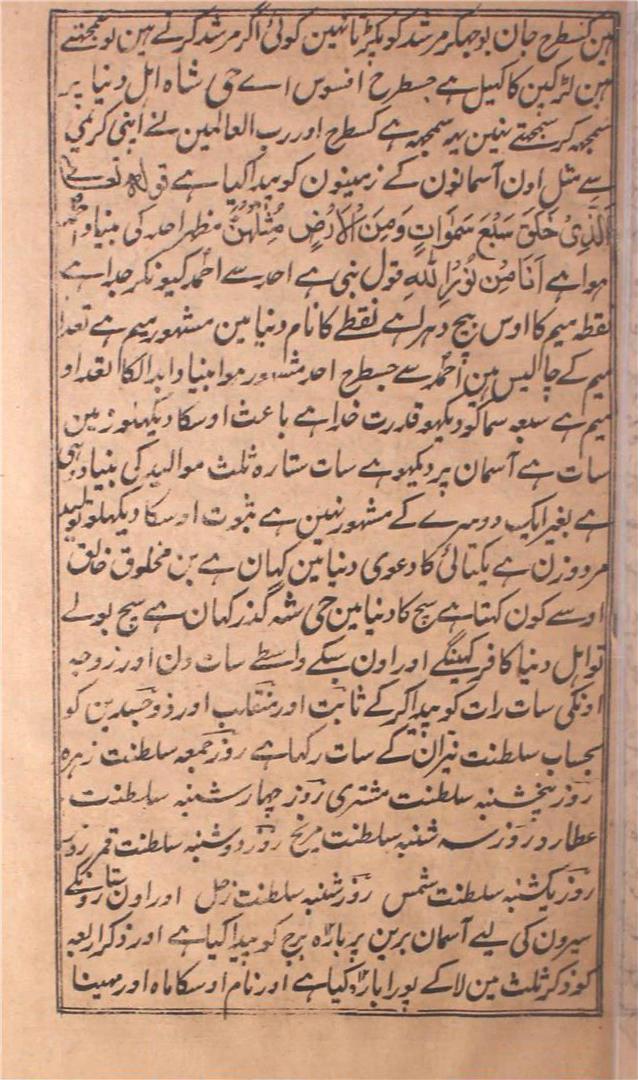 ہین کسطرح جان بوجہکر مرشد کو پکڑتا نہین کوئی اگر مرشد کرنے ہین تو سمجہتے
ہین لڑکپن کا کہیل ہے جسطرح افسوس اے حی شاہ اہل دنیا پر
سمجہہ کر سمجہتے نہین یہہ سمجہہ ہے کسطرح اور رب العالمین نے اپنی کریمی
سے مثل اون آسمانون کے زمینون کو پیدا کیا ہے قولہ تعالے
اَلَّذِیْ خَلَقَ سَبْعَ سَمٰوَاتٍ وَمِنَ الْاَرْضِ مِثْلَہُنَّ مظہر احد کی بنیاد احمد
ہوا ہے اَنَا مِنْ نُوْرِ اللہِ قول نبی ہے احد سے احمد کیونکر جدا ہے
نقطہ میم کا اوس بیچ دہرا ہے نقطے کا نام دنیا مین مشہور میم ہے تعداد
میم کے چالیس ہین احمد سے جسطرح احد مشہور ہوا بنیاد ابدال کا تعداد
میم ہے سبعہ سما کو دیکہو قدرت خدا ہے باعث اوسکا دیکہلو زمین
سات ہے آسمان پر دیکہو ہے سات ستارہ ثلث موالید کی بنیاد وہی
ہے بغیر ایک دوسرے کے مشہور نہین ہے ثبوت اوسکا دیکہلو تولید
مرد و زن ہے یکتائی کا دعوی دنیا مین کہان ہے بن مخلوق خالق
اوسے کون کہتا ہے سچ کا دنیا مین حی شہ گذر کہان ہے سچ بولے
تو اہل دنیا کافر کہینگے اور اون سبکے واسطے سات دن اور زوجہ
اونکی سات رات کو پیدا کر کے ثابت اور منقلب اور ذو جسدین کو
بحساب سلطنت نیران کے سات رکہا ہے روز جمعہ سلطنت زہرہ
روز پنجشنبہ سلطنت مشتری روز چہارشنبہ سلطنت
عطارد روز سہ شنبہ سلطنت مریخ روز دوشنبہ سلطنت قمر روز
روز یکشنبہ سلطنت شمس روز شنبہ سلطنت زحل اور اون ستارونکے
سیرون کی لیے آسمان برین پر بارہ برج کو پیدا کیا ہے اور ذکر اربعہ
کو ذکر ثلث مین لا کے پورا بارہ کیا ہے اور نام اوسکا ماہ اور مہینا